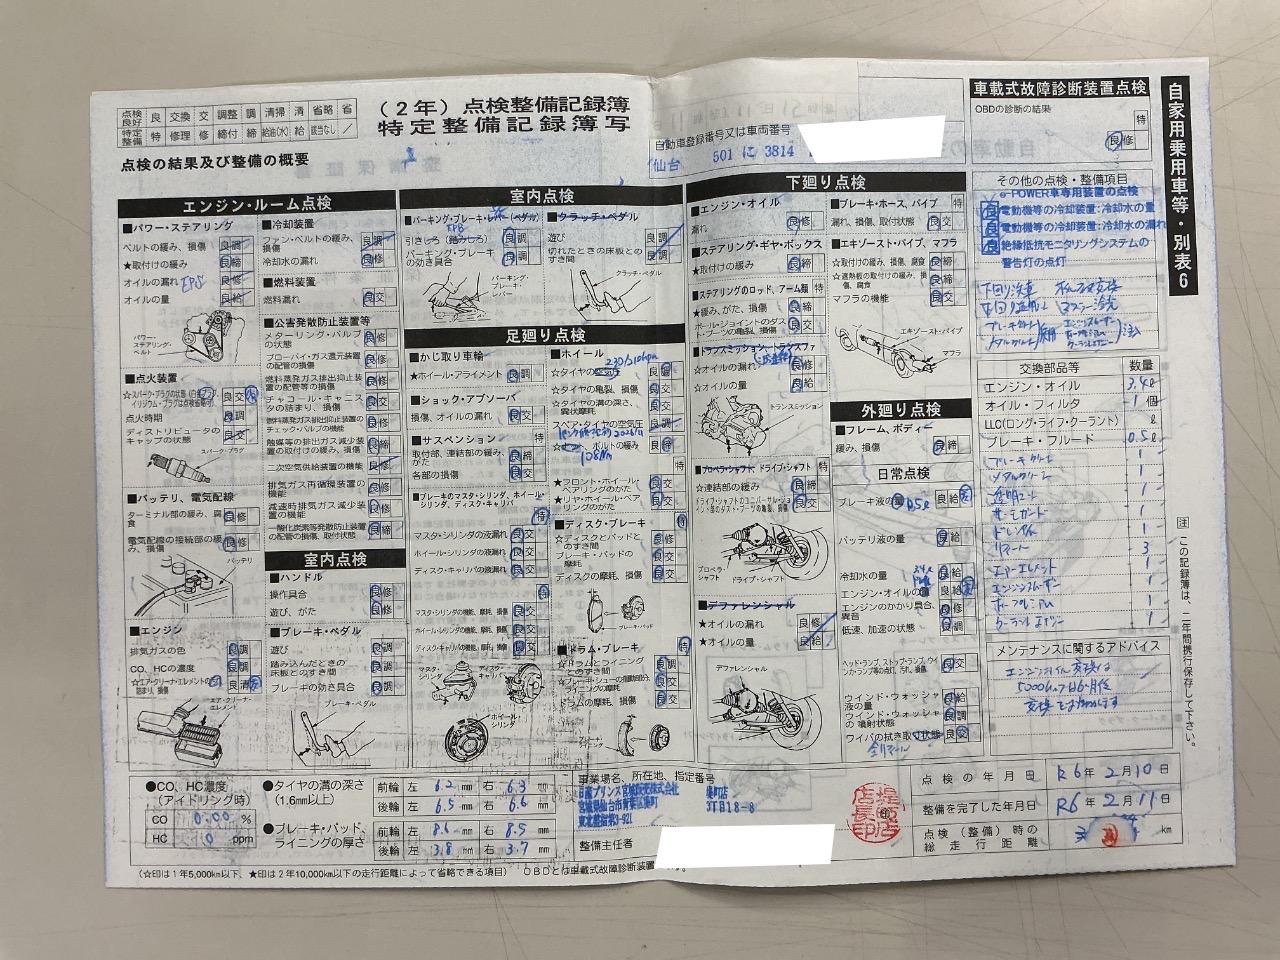 点検良好 良 交換 交 調整 調 清掃 清 省略 省
特定整備 特 修理 修 締付 締 給油(水) 給 該当なし ／
(2年) 点検整備記録簿
特定整備記録簿写
点検の結果及び整備の概要
自動車登録番号又は車両番号
仙台 501 に 3814
車載式故障診断装置点検
OBDの診断の結果
特
良 修
自家用乗用車等・別表6
エンジン・ルーム点検
■パワー・ステアリング
ベルトの緩み、損傷 良 調
★取付けの緩み 良 締
オイルの漏れ 良 修
EPS
オイルの量 良 給
パワー・ステアリング・ベルト
■点火装置
点火時期 良 調
ディストリビュータのキャップの状態 良 交
スパーク・プラグ
■バッテリ、電気配線
ターミナル部の緩み、腐食 良 修
電気配線の接続部の緩み、損傷 良 修
バッテリ
■エンジン
排気ガスの色 良 調
CO、HCの濃度 良 調
☆エア・クリーナ・エレメントの詰まり、損傷 良 清
エア・クリーナ・エレメント
■冷却装置
ファン・ベルトの緩み、損傷 良 調
冷却水の漏れ 良 修
■燃料装置
燃料漏れ 良 交
■公害発散防止装置等
メターリング・バルブの状態 良 修
ブローバイ・ガス還元装置の配管の損傷 良 修
燃料蒸発ガス排出抑止装置の配管等の損傷 良 修
チャコール・キャニスタの詰まり、損傷 良 修
燃料蒸発ガス排出抑止装置のチェック・バルブの機能 良 修
触媒等の排出ガス減少装置の取付けの緩み、損傷 良 締
二次空気供給装置の機能 良 修
排気ガス再循環装置の機能 良 修
減速時排気ガス減少装置の機能 良 修
一酸化炭素等発散防止装置の配管の損傷、取付状態 良 締
室内点検
■ハンドル
操作具合 良 修
遊び、がた 良 修
■ブレーキ・ペダル
遊び 良 調
踏み込んだときの床板とのすき間 良 調
ブレーキの効き具合 良 調
ブレーキ・ペダル
室内点検
■パーキング・ブレーキ・レバー(ペダル)
EPB
引きしろ(踏みしろ) 良 調
パーキング・ブレーキの効き具合 良 調
パーキング・ブレーキ・レバー
■クラッチ・ペダル
遊び 良 調
切れたときの床板とのすき間 良 調
クラッチ・ペダル
足廻り点検
■かじ取り車輪
★ホイール・アライメント 良 調
■ショック・アブソーバ
損傷、オイルの漏れ 良 交
■サスペンション 特
取付部、連結部の緩み、がた 良 締
各部の損傷 良 修
■ブレーキのマスタ・シリンダ、ホイール・シリンダ、ディスク・キャリパ
特
マスタ・シリンダの液漏れ 良 交
ホイール・シリンダの液漏れ 良 交
ディスク・キャリパの液漏れ 良 交
マスタ・シリンダの機能、摩耗、損傷 良 交
ホイール・シリンダの機能、摩耗、損傷 良 交
ディスク・キャリパの機能、摩耗、損傷 良 交
マスタ・シリンダ
ディスク・キャリパ
ホイール・シリンダ
■ホイール
☆タイヤの空気圧 良 調
☆タイヤの亀裂、損傷 良 交
☆タイヤの溝の深さ、異状摩耗 良 交
スペア・タイヤの空気圧 良 調
ボルトの緩み 良 締
108Nm
★フロント・ホイール・ベアリングのがた 良 締
★リヤ・ホイール・ベアリングのがた 良 締
■ディスク・ブレーキ 特
☆ディスクとパッドとのすき間 良 修
☆ブレーキ・パッドの摩耗 良 交
ディスクの摩耗、損傷 良 交
ブレーキ・パッド
■ドラム・ブレーキ 特
☆ドラムとライニングとのすき間 良 調
☆ブレーキシューの摺動部分、ライニングの摩耗 良 交
ドラムの摩耗、損傷 良 交
下廻り点検
■エンジン・オイル
漏れ 良 修
■ステアリング・ギヤ・ボックス
★取付けの緩み 良 締
■ステアリングのロッド、アーム類 特
★緩み、がた、損傷 良 締
ボール・ジョイントのダスト・ブーツの亀裂、損傷 良 交
■トランスミッション、トランスファ
☆オイルの漏れ 良 修
☆オイルの量 良 給
トランスミッション
■プロペラ・シャフト、ドライブ・シャフト 特
☆連結部の緩み 良 締
ドライブ・シャフトのユニバーサル・ジョイント部のダスト・ブーツの亀裂、損傷 良 交
プロペラ・シャフト
ドライブ・シャフト
■デファレンシャル
★オイルの漏れ 良 修
★オイルの量 良 給
デファレンシャル
■ブレーキ・ホース、パイプ 特
漏れ、損傷、取付状態 良 交
■エキゾースト・パイプ、マフラ
☆取付けの緩み、損傷、腐食 良 締
☆遮熱板の取付けの緩み、損傷、腐食 良 締
マフラの機能 良 交
エキゾースト・パイプ
マフラ
外廻り点検
■フレーム、ボディー
緩み、損傷 良 締
日常点検
ブレーキ液の量 良 給
0.5ℓ
バッテリ液の量 良 給
冷却水の量 良 給
エンジン・オイルの量 良 給
エンジンのかかり具合、異音 良 修
低速、加速の状態 良 調
ヘッドランプ、ストップランプ、ウインカランプ等の点灯、汚れ、損傷 良 交
ウインド・ウォッシャ液の量 良 給
ウインド・ウォッシャの噴射状態 良 調
ワイパの拭き取り状態 良 交
その他の点検・整備項目
e-POWER車専用装置の点検
良 電動機等の冷却装置：冷却水の量
良 電動機等の冷却装置：冷却水の漏れ
良 絶縁抵抗モニタリングシステムの
警告灯の点灯
下回り洗車
交換部品等 数量
エンジン・オイル 3.4ℓ
オイル・フィルタ 1 個
LLC(ロング・ライフ・クーラント) ℓ
ブレーキ・フルード 0.5ℓ
ブレーキクリーナ 1
メタルクリーン 1
1
1
ドレン 1
3
エアーエレメント 1
1
1
1
メンテナンスに関するアドバイス
エンジンオイル交換は
5000km又は6ヶ月後
交換をおすすめします
注 この記録簿は、二年間携行保存して下さい。
●CO、HC濃度
(アイドリング時)
CO 0.00 %
HC 0 ppm
●タイヤの溝の深さ
(1.6mm以上)
前輪 左 6.2 mm 右 6.3 mm
後輪 左 6.5 mm 右 6.6 mm
●ブレーキ・パッド、ライニングの厚さ
前輪 左 8.6 mm 右 8.5 mm
後輪 左 3.8 mm 右 3.7 mm
事業場名、所在地、指定番号
日産プリンス宮城販売株式会社 堤町店
宮城県仙台市青葉区堤町 3丁目18-8
東北整指第3-921
整備主任者
堤町店店長印
点検の年月日 R6年2月10日
整備を完了した年月日 R6年2月11日
点検(整備)時の総走行距離 km
(☆印は1年5,000km以下、★印は2年10,000km以下の走行距離によって省略できる項目) OBDとは車載式故障診断装置